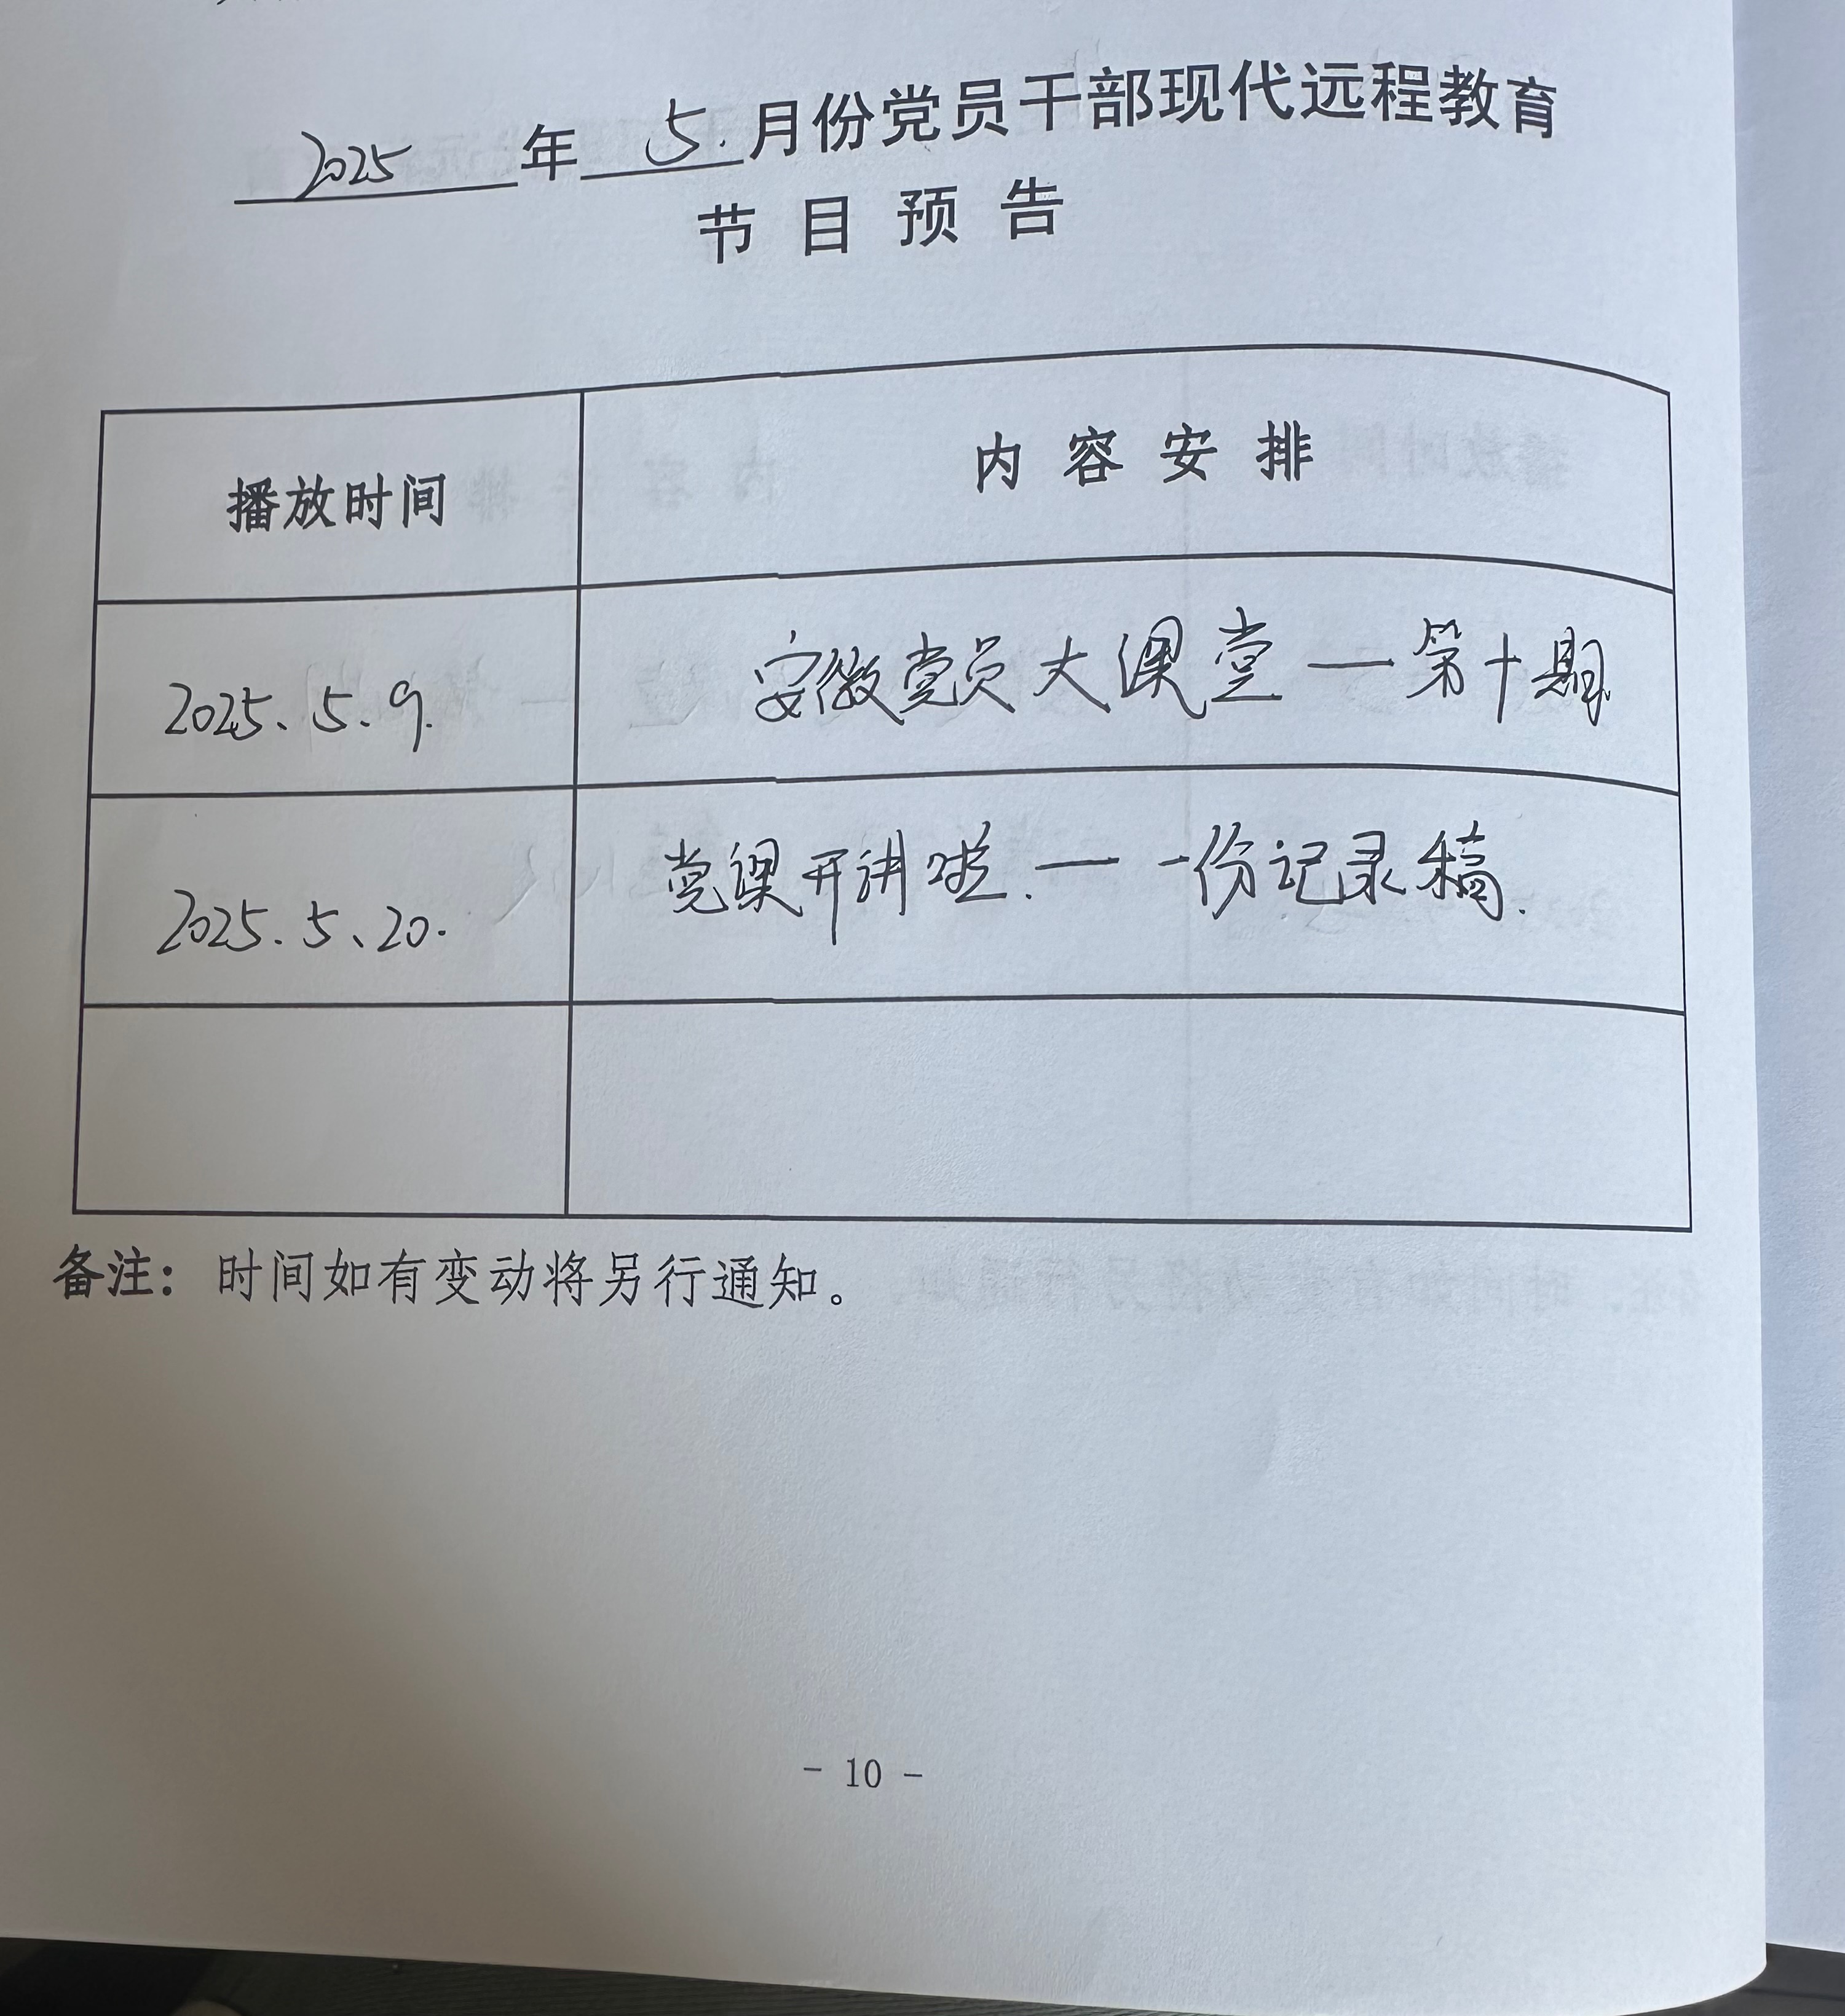 2025年5.月份党员干部现代远程教育
节目预告
播放时间 内容安排
2025、5.9. 安徽党员大课堂—第十期
2025.5、20. 党课开讲啦.—一份记录稿.
备注：时间如有变动将另行通知。
- 10 -